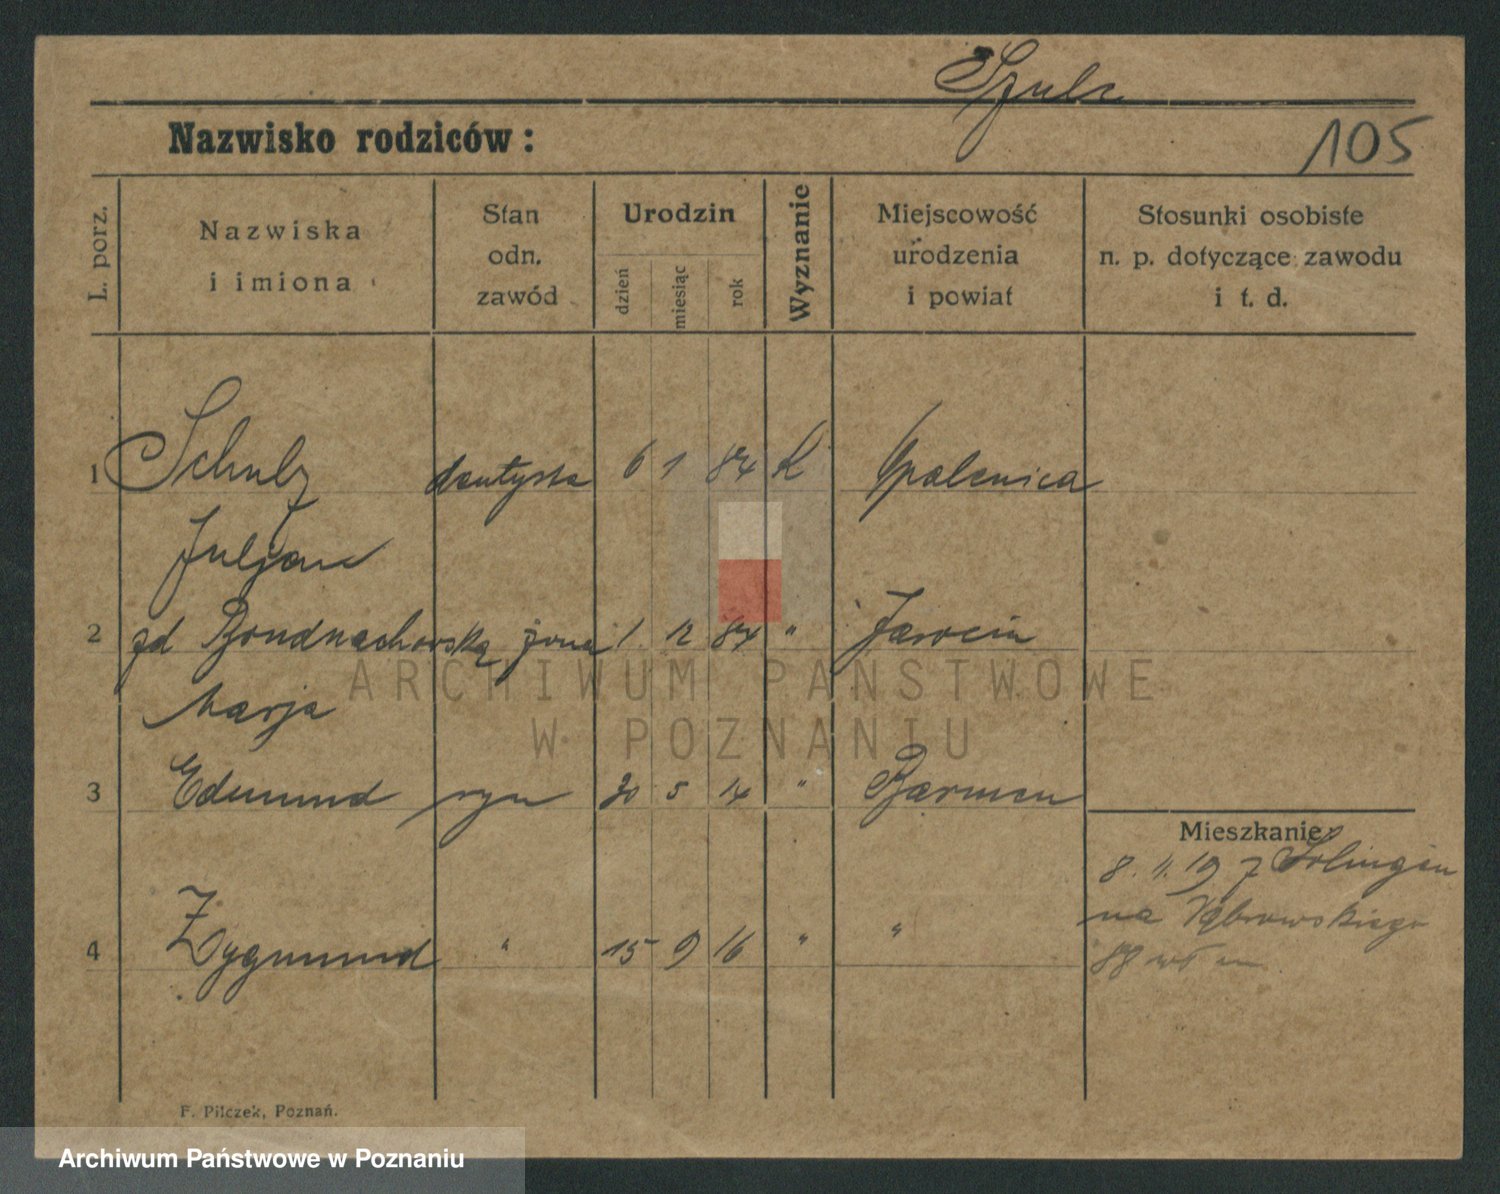 Szulc
Nazwisko rodziców:
105
L. porz.
Nazwiska
i imiona
Stan
odn.
zawód
Urodzin
dzień
miesiąc
rok
Wyznanie
Miejscowość
urodzenia
i powiat
Stosunki osobiste
n. p. dotyczące zawodu
i t. d.
1 Schulz dentysta 6 1 84 k Opalenica
Juljan
2 zd żona 1. 12 84 " Jarocin
Marja
3 Edmund syn 30 5 14 " Barmen
Mieszkanie
8. 11. 19 z Solingen
na Dąbrowskiego
4 Zygmund " 15 9 16 " "
88
F. Pilczek, Poznań.
ARCHIWUM PAŃSTWOWE
W POZNANIU
Archiwum Państwowe w Poznaniu